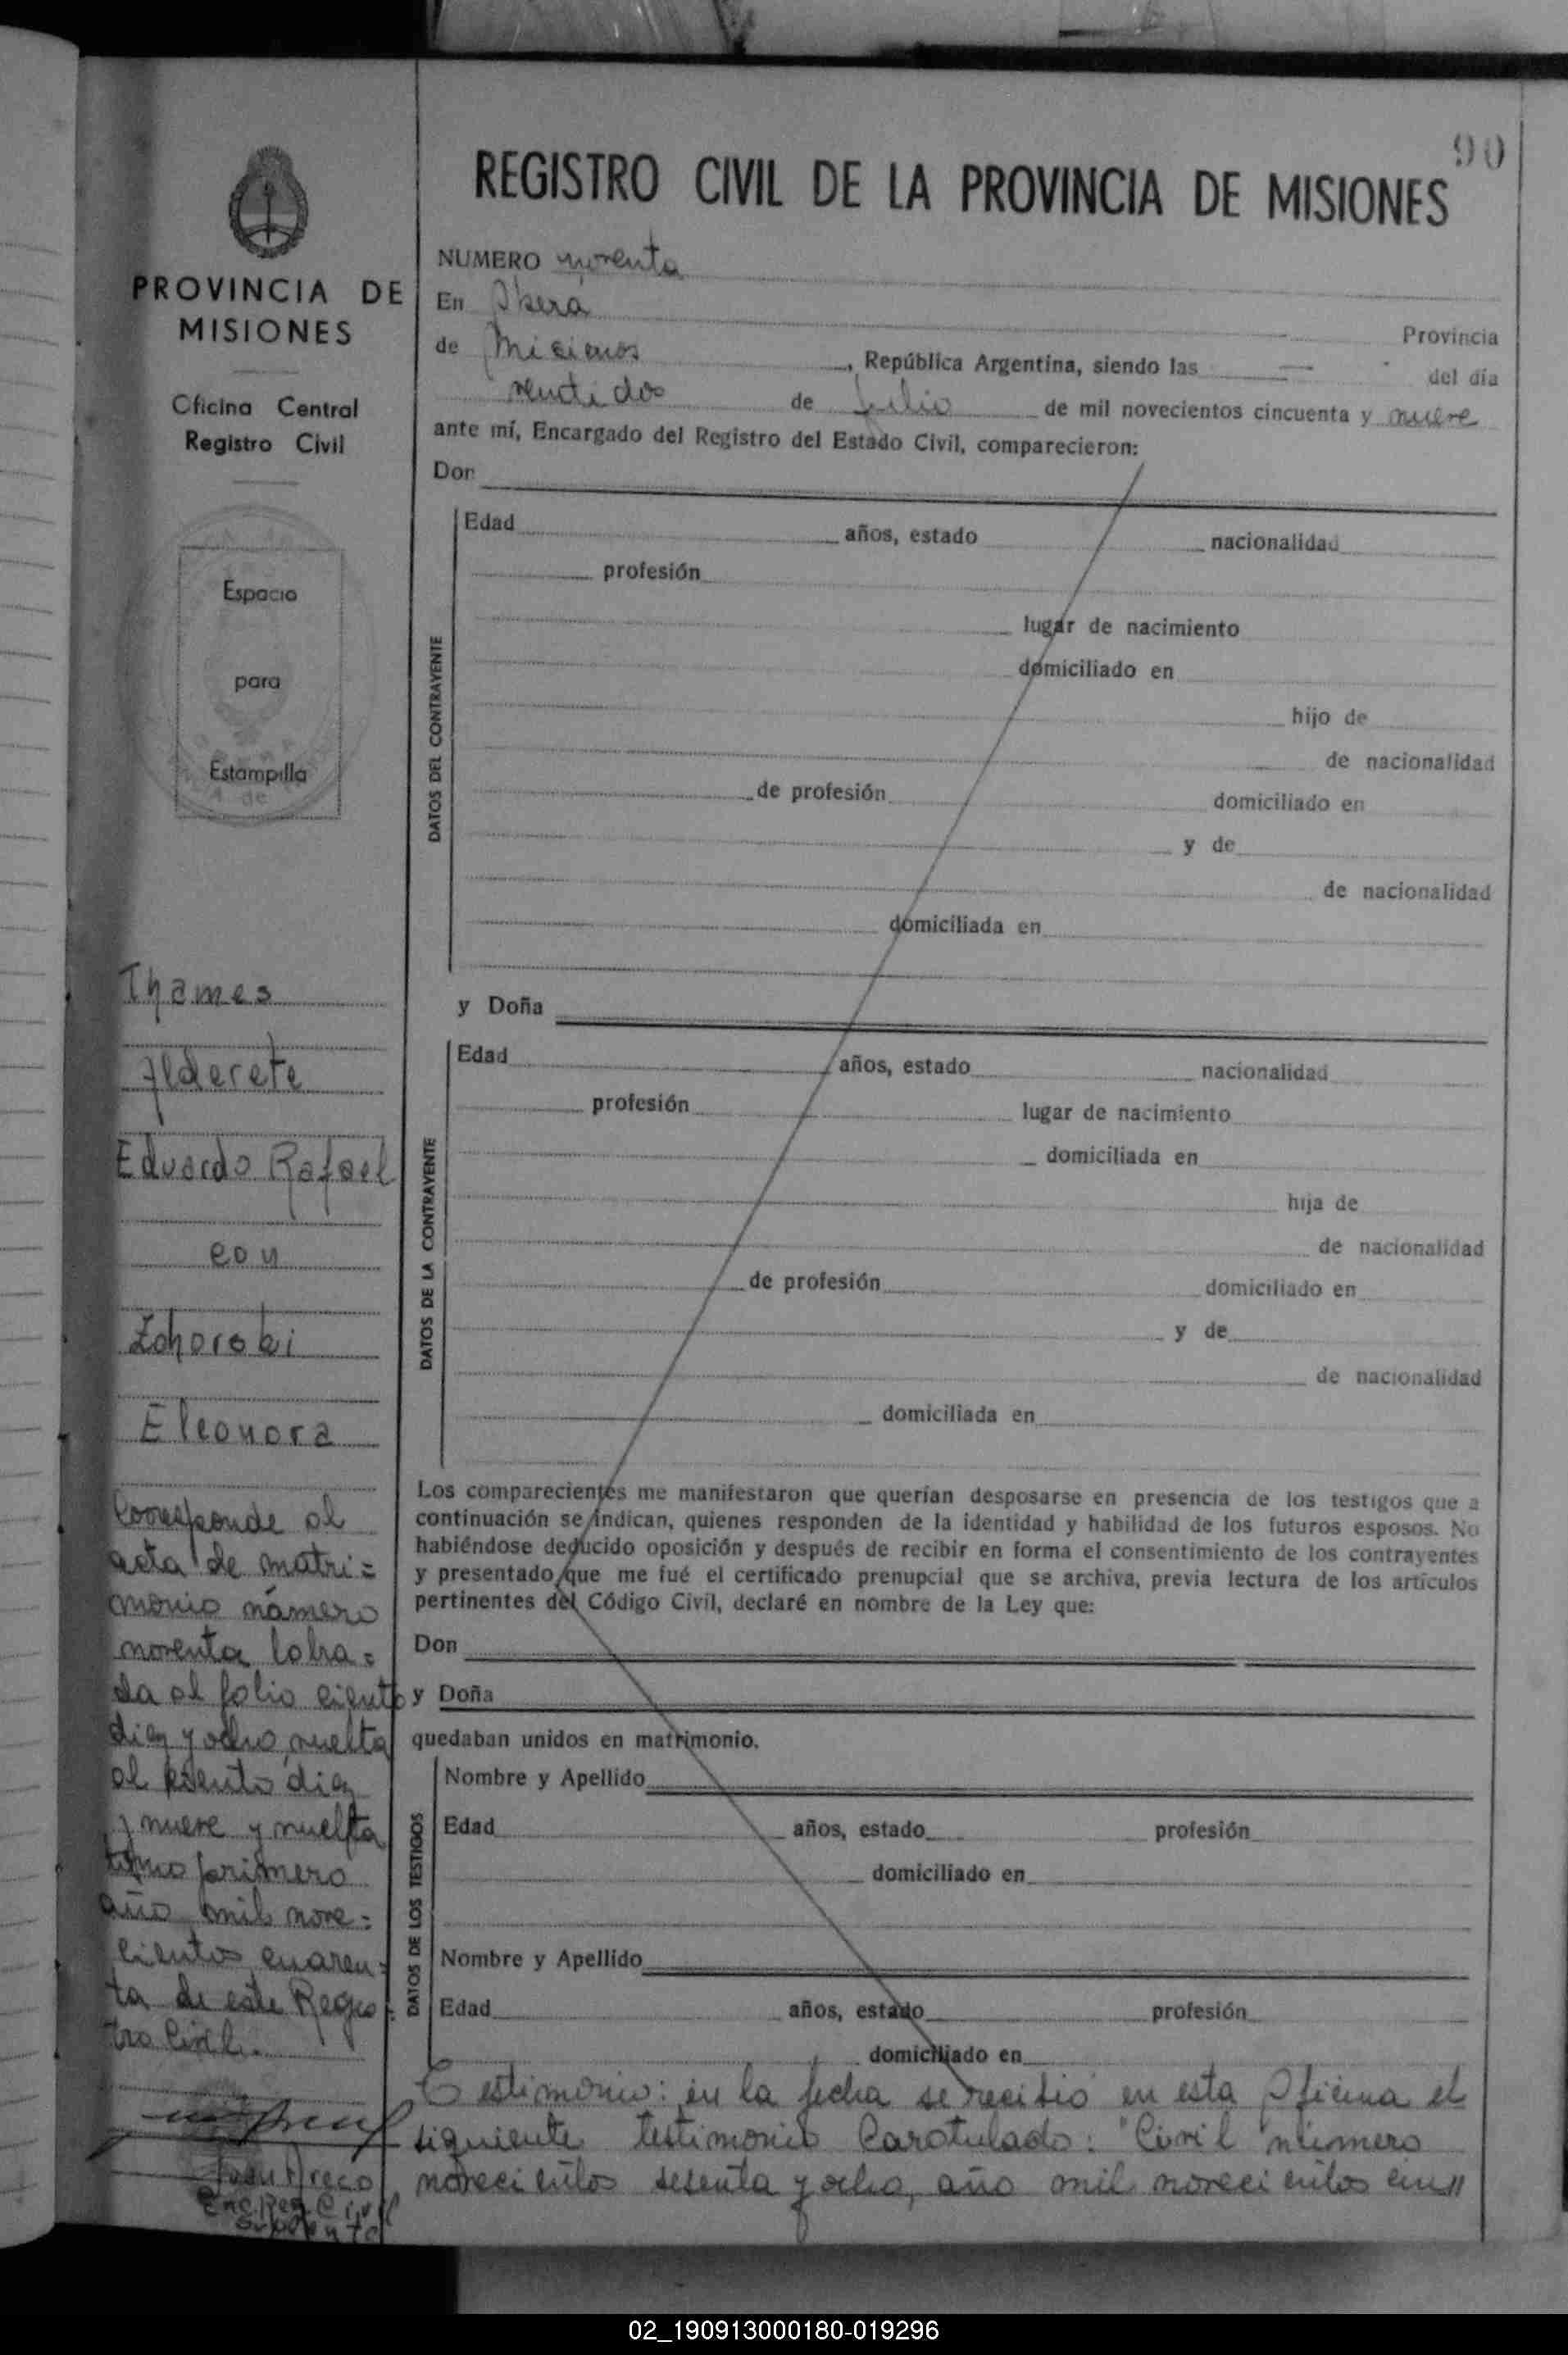 90
REGISTRO CIVIL DE LA PROVINCIA DE MISIONES
PROVINCIA DE
MISIONES
Oficina Central
Registro Civil
Espacio
para
Estampilla
Thames
Alderete
Eduardo Rafael
con
Eleonora
Corresponde al
acta de matri=
monio número
noventa labra=
da al folio ciento
diez y ocho vuelta
al ciento diez
y nueve y vuelta
tomo primero
año mil nove=
cientos cuaren=
ta de este Regis=
tro Civil.
Enc. Reg. Civil
NUMERO noventa
En Oberá Provincia
de Misiones, República Argentina, siendo las — del día
veintidos de Julio de mil novecientos cincuenta y nueve
ante mí, Encargado del Registro del Estado Civil, comparecieron:
Don
DATOS DEL CONTRAYENTE
Edad años, estado nacionalidad
profesión
lugar de nacimiento
domiciliado en
hijo de
de nacionalidad
de profesión domiciliado en
y de
de nacionalidad
domiciliada en
y Doña
DATOS DE LA CONTRAYENTE
Edad años, estado nacionalidad
profesión lugar de nacimiento
domiciliada en
hija de
de nacionalidad
de profesión domiciliado en
y de
de nacionalidad
domiciliada en
Los comparecientes me manifestaron que querían desposarse en presencia de los testigos que a
continuación se indican, quienes responden de la identidad y habilidad de los futuros esposos. No
habiéndose deducido oposición y después de recibir en forma el consentimiento de los contrayentes
y presentado que me fué el certificado prenupcial que se archiva, previa lectura de los artículos
pertinentes del Código Civil, declaré en nombre de la Ley que:
Don
y Doña
quedaban unidos en matrimonio.
DATOS DE LOS TESTIGOS
Nombre y Apellido
Edad años, estado profesión
domiciliado en
Nombre y Apellido
Edad años, estado profesión
domiciliado en
Testimonio: en la fecha se recibió en esta Oficina el
siguiente testimonio Carotulado: "Civil número
novecientos sesenta y ocho, año mil novecientos cin//
02_190913000180-019296